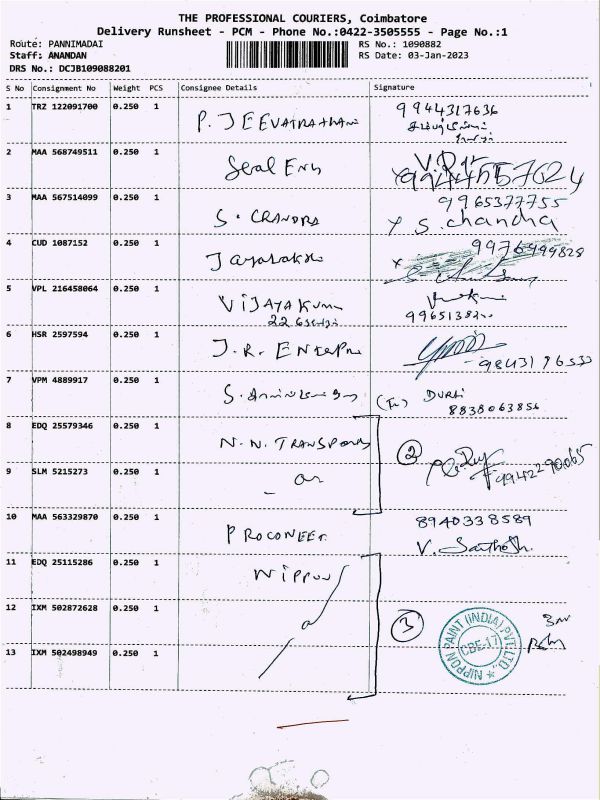 THE PROFESSIONAL COURIERS, Coimbatore
Delivery Runsheet - PCM - Phone No.:0422-3505555 - Page No.:1
Route: PANNIMADAI
RS No.: 1090882
Staff: ANANDAN
RS Date: 03-Jan-2023
DRS No.: DCJB109088201
S No Consignment No Weight PCS Consignee Details Signature
1 TRZ 122091700 0.250 1 P. JEEVARATHAM 9944317636
2 MAA 568749511 0.250 1 Seral Eng 9944557624
3 MAA 567514099 0.250 1 S. CHANDRA 9965377755
x S. chandra
4 CUD 1087152 0.250 1 9976499828
5 VPL 216458064 0.250 1 VIJAYAKUM
22
6 HSR 2597594 0.250 1 J.R. ENTERPR
7 VPM 4889917 0.250 1 DURAI
8838063856
8 EDQ 25579346 0.250 1 N.N. TRANSPORTS 2
9 SLM 5215273 0.250 1 99422 90065
10 MAA 563329870 0.250 1 PROCONEER 8940338589
V. Santhosh.
11 EDQ 25115286 0.250 1 NIPPON
12 IXM 502872628 0.250 1 3
NIPPON PAINT (INDIA) PVT. LTD.
CBE-17
13 IXM 502498949 0.250 1